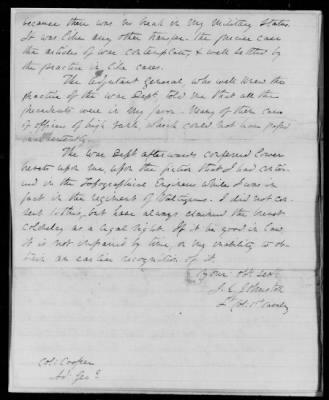 because there was no break in my military status.
It was like any other transfer. The precise case
the articles of war contemplate, & well settled by
the practice in like cases.
The Adjutant General, who well knew the
practice of the War Dept, told me that all the
precedents were in my favor. Many of them cases
of officers of high rank which could not have passed
inadvertently.
The War Dept afterwards conferred lower
brevets upon me, upon the fiction that I had contin-
ued in the Topographical Engineers while I was in
fact in the regiment of Voltigeurs. I did not con-
sent to this, but have always claimed the brevet
colonelcy as a legal right. If it be good in law,
it is not impaired by time, or my inability to ob-
tain an earlier recognition of it.
Your obt Sevt
J. E. Johnston
Lt Col: 1st Cavalry
Col: Cooper
Ad. Genl